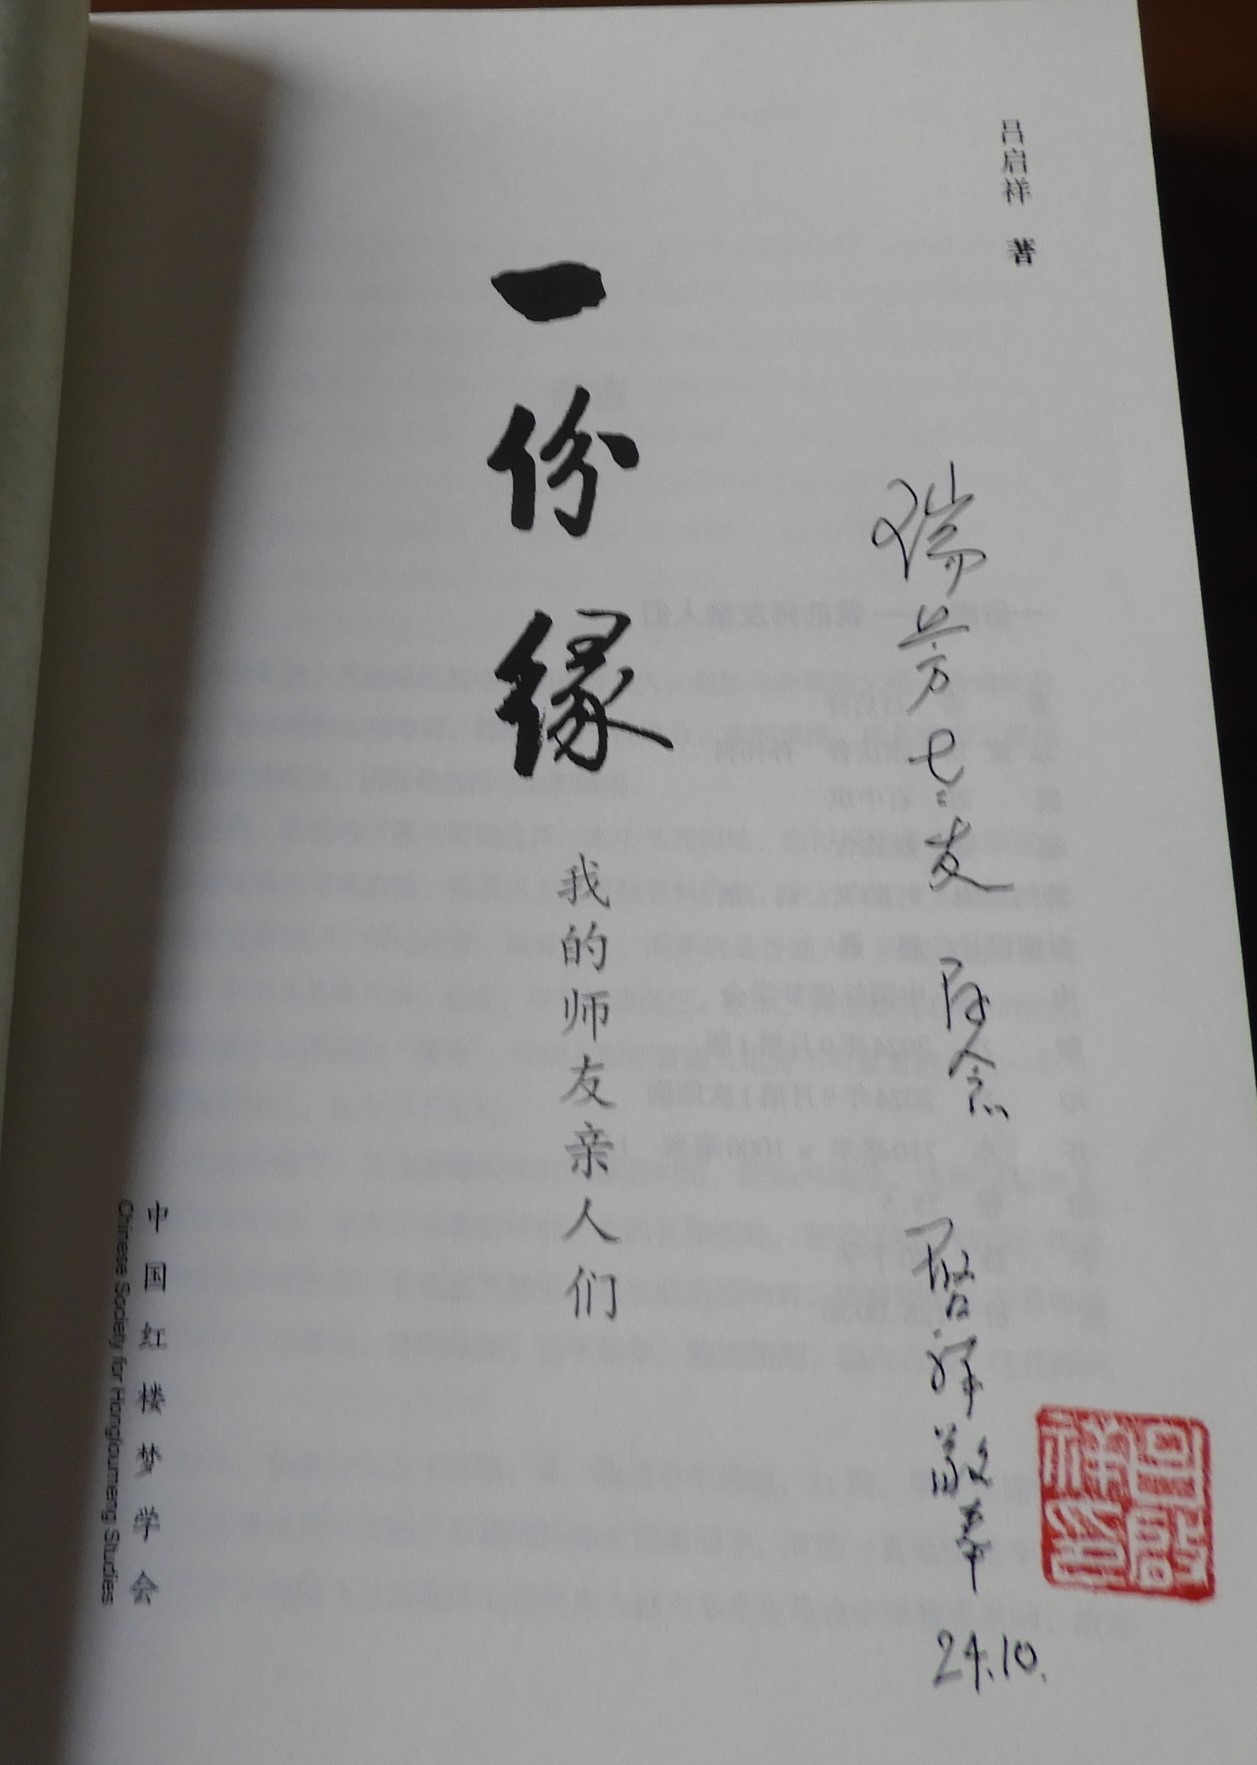 吕启祥 著
瑞芳 友 存念 啓祥敬奉
24.10.
吕啓祥印
一份缘
我的师友亲人们
中国红楼梦学会
Chinese Society for Hongloumeng Studies